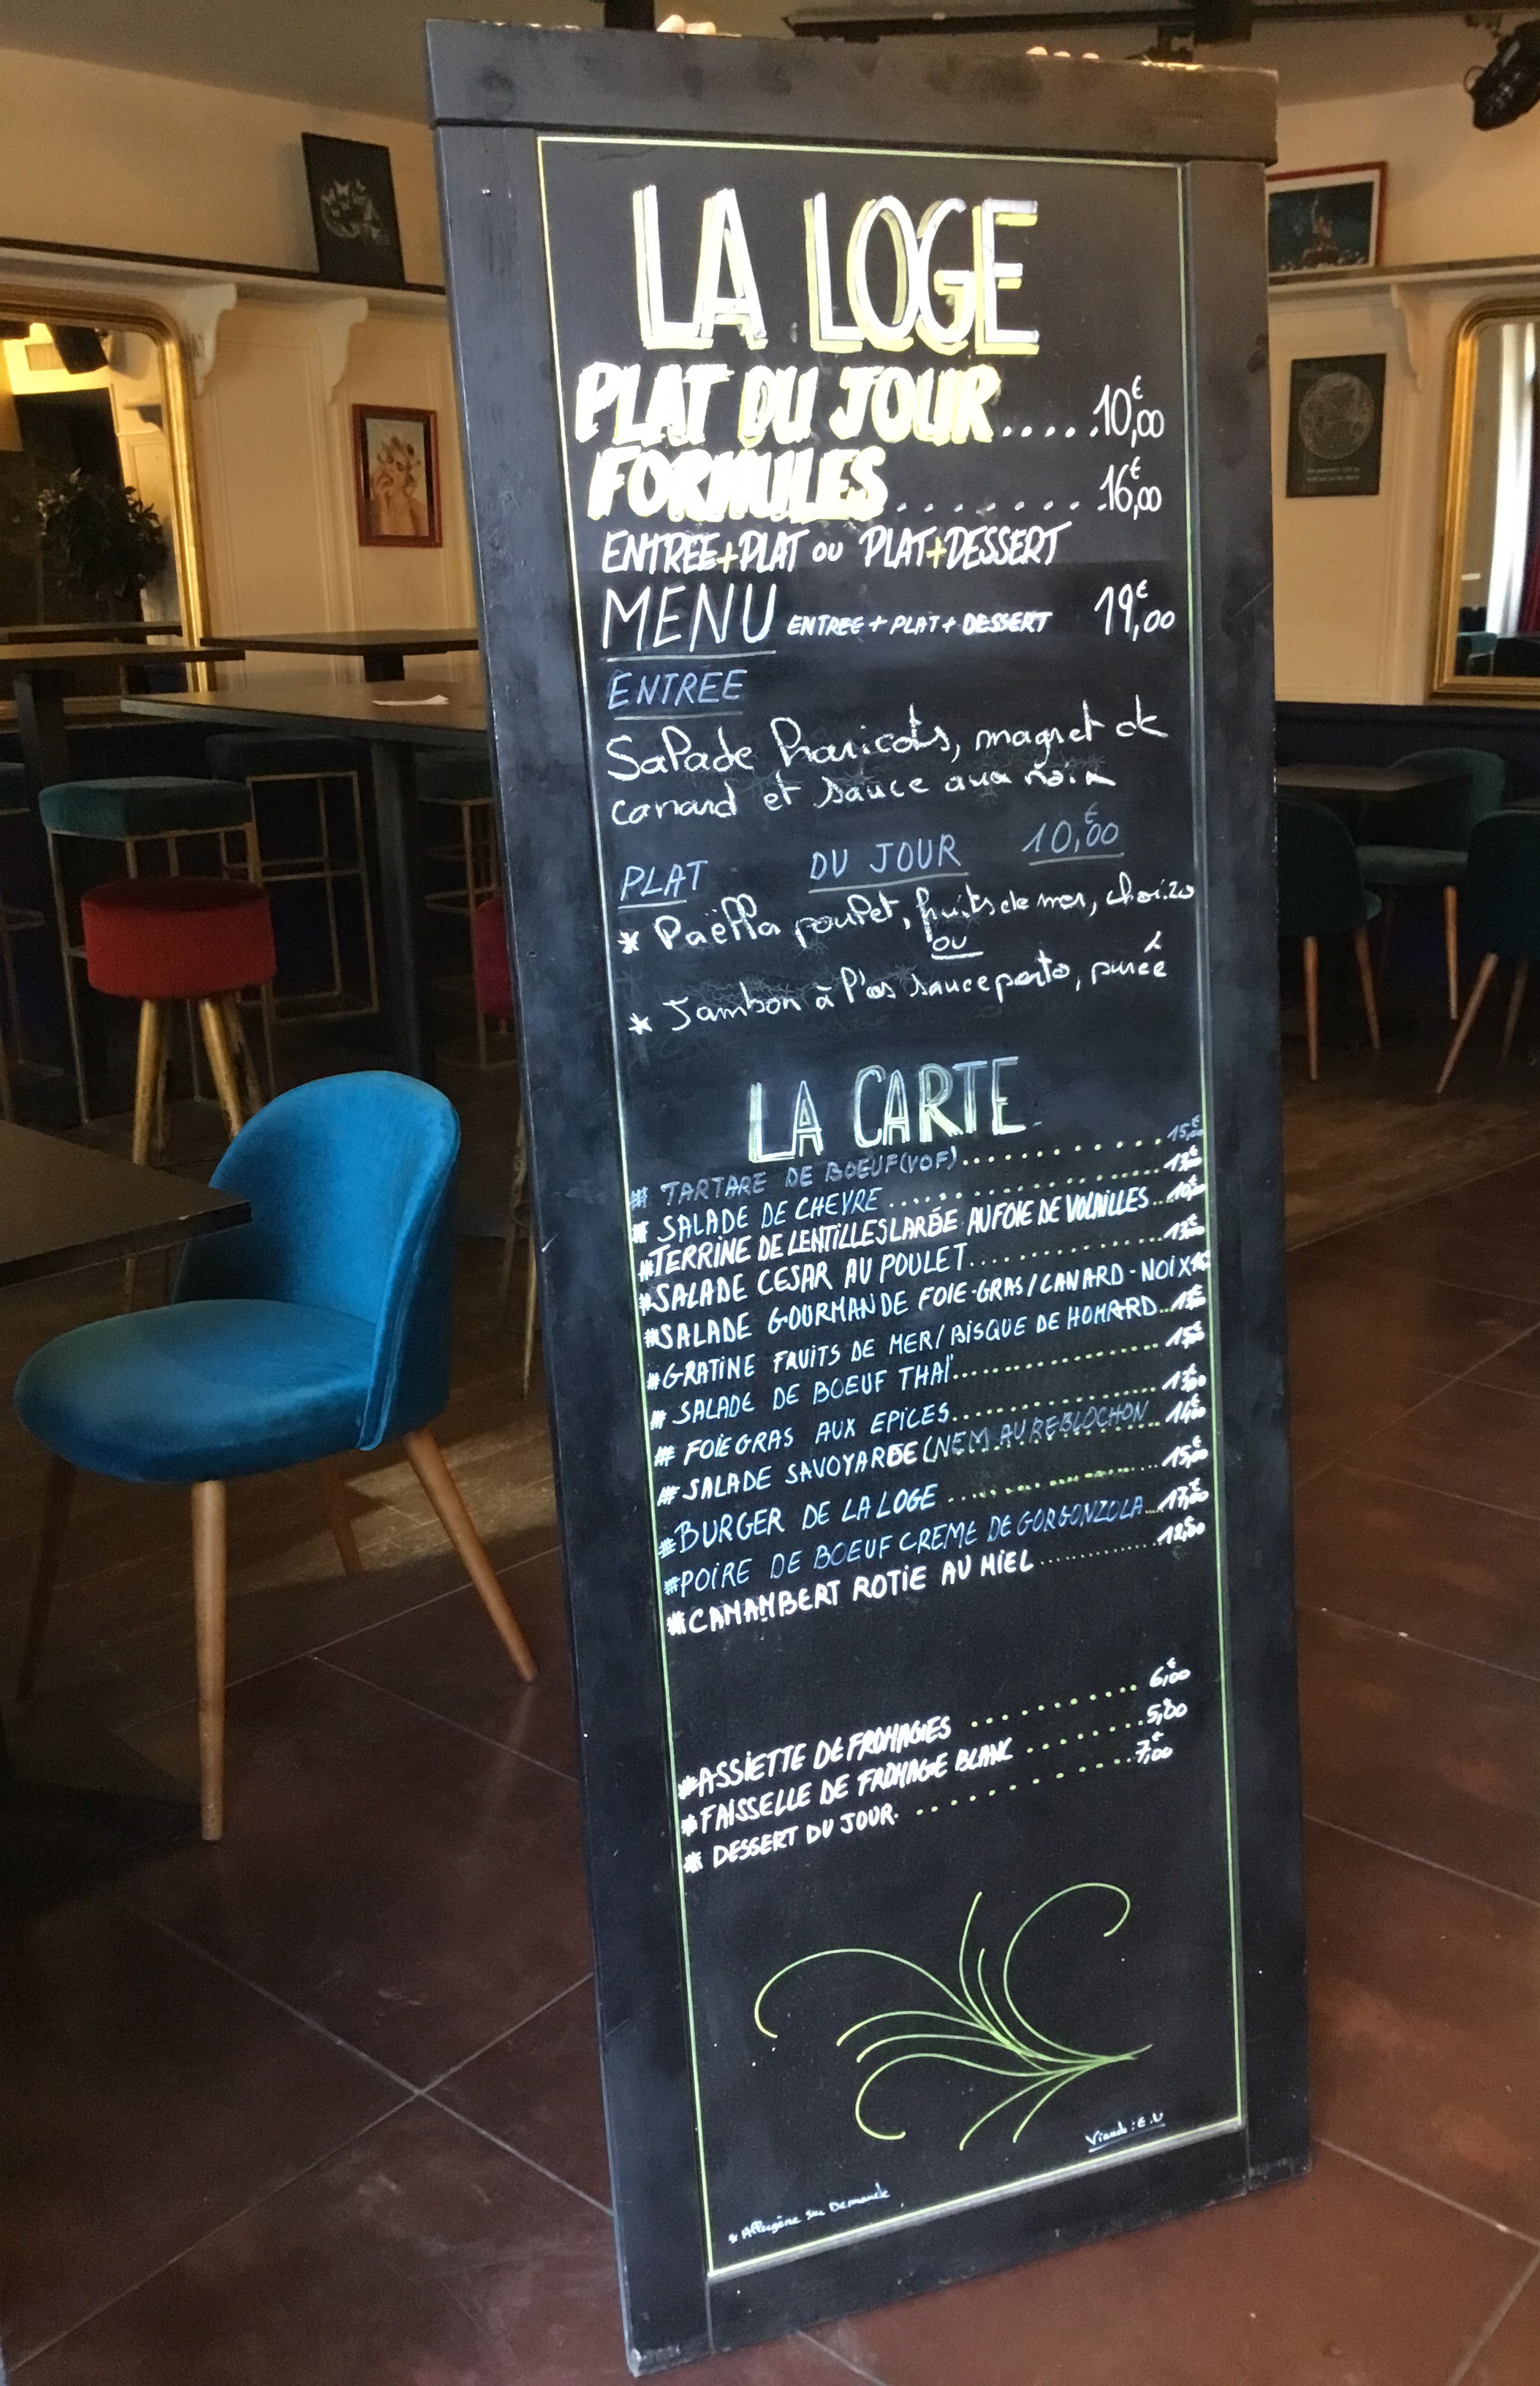 LA LOGE
PLAT DU JOUR.....10,00€
FORMULES........16,00€
ENTREE+PLAT ou PLAT+DESSERT
MENU ENTREE + PLAT + DESSERT 19,00€
ENTREE
Salade haricots, magret de
canard et sauce aux noix
PLAT DU JOUR 10,00€
* Paëlla poulet, fruits de mer, chorizo
ou
* Jambon à l'os sauce porto, purée
LA CARTE
# TARTARE DE BOEUF(VOF)............15,00€
# SALADE DE CHEVRE..................13,00€
#TERRINE DE LENTILLES LARBÉE AU FOIE DE VOLAILLES...10,00€
#SALADE CESAR AU POULET...............13,00€
#SALADE GOURMANDE FOIE-GRAS/CANARD-NOIX
#GRATINE FRUITS DE MER/BISQUE DE HOMARD...
# SALADE DE BOEUF THAÏ..................15,00€
# FOIE GRAS AUX EPICES..................
# SALADE SAVOYARDE (NEM AU REBLOCHON...14,00€
#BURGER DE LA LOGE..................15,00€
#POIRE DE BOEUF CREME DE GORGONZOLA...17,00€
#CAMAMBERT ROTIE AU MIEL...............
#ASSIETTE DE FROMAGES...........6,00€
#FAISSELLE DE FROMAGE BLANC........5,00€
# DESSERT DU JOUR...........7,00€
Viande : E.U
* Allergène sur Demande